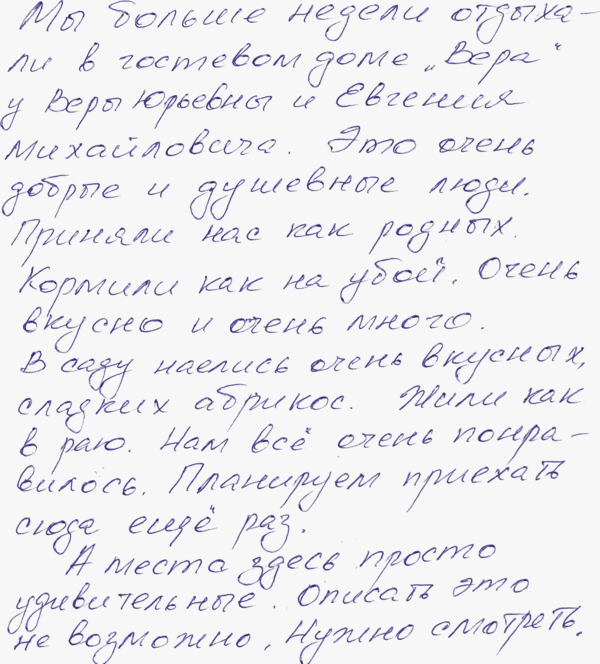 Мы больше недели отдыха-
ли в гостевом доме „Вера“
у Веры Юрьевны и Евгения
Михайловича. Это очень
добрые и душевные люди.
Приняли нас как родных.
Кормили как на убой. Очень
вкусно и очень много.
В саду наелись очень вкусных,
сладких абрикос. Жили как
в раю. Нам всё очень понра-
вилось. Планируем приехать
сюда ещё раз.
А места здесь просто
удивительные. Описать это
не возможно. Нужно смотреть.